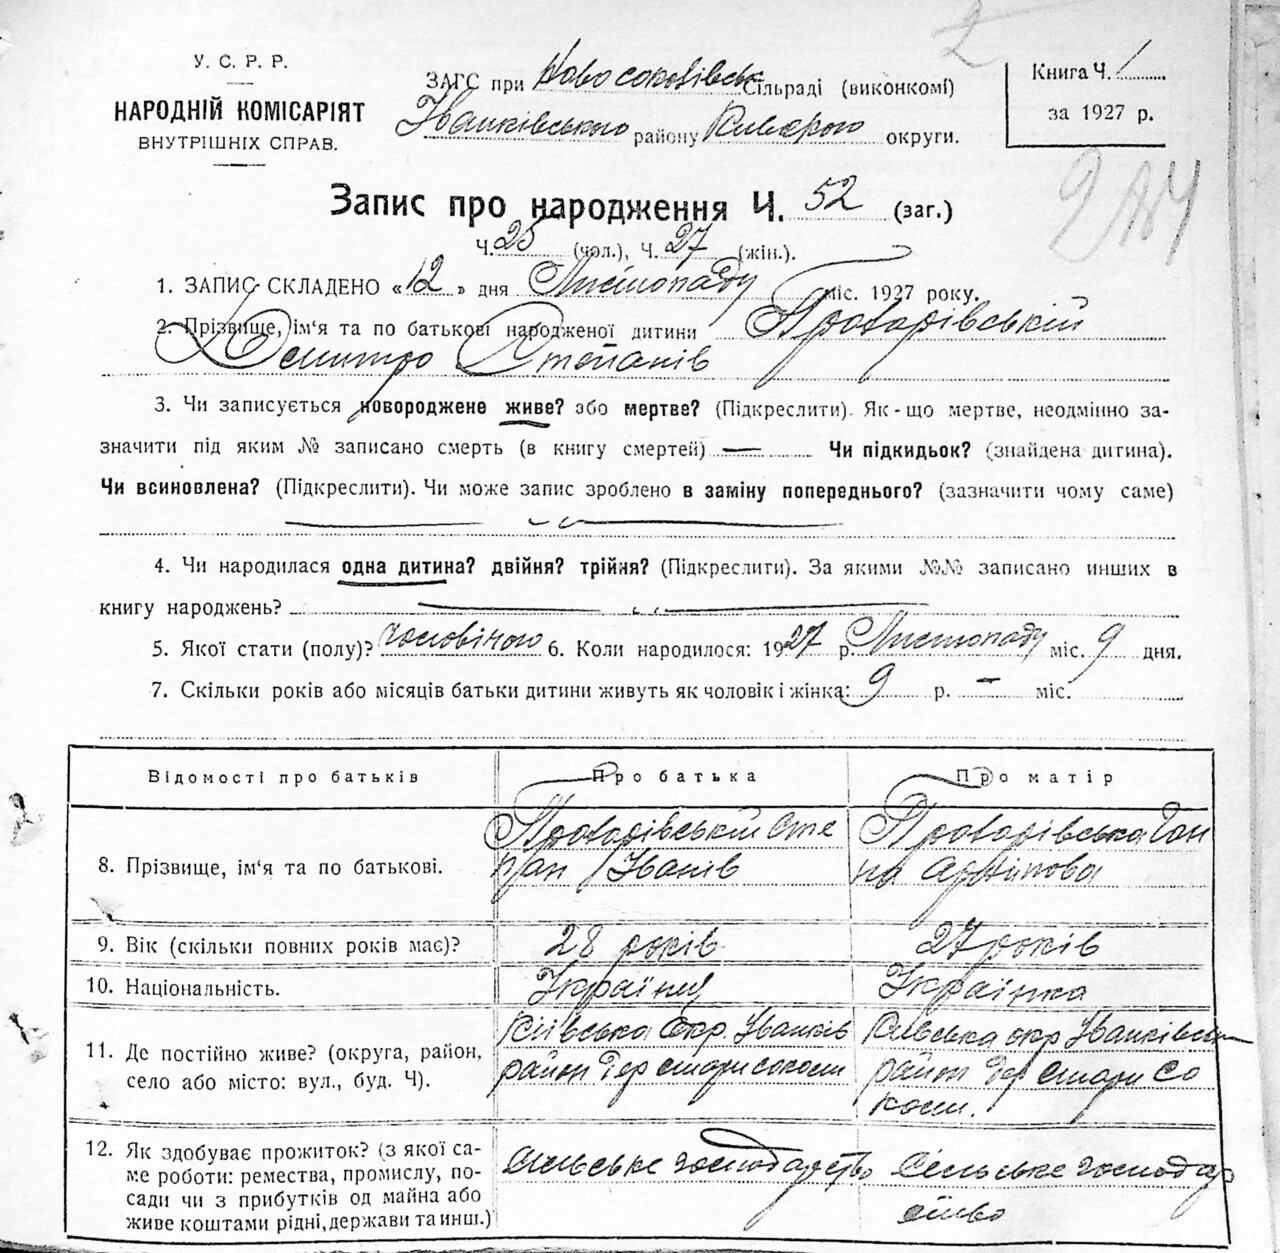 У. С. Р. Р.
НАРОДНІЙ КОМІСАРІЯТ
ВНУТРІШНІХ СПРАВ.
ЗАГС при Новосоколівськ Сільраді (виконкомі)
Іванківського району Київського округи.
Книга Ч. 1
за 1927 р.
Запис про народження Ч. 52 (заг.)
Ч. 25 (чол.), Ч. 27 (жін.).
1. ЗАПИС СКЛАДЕНО «12» дня Листопаду міс. 1927 року.
2. Прізвище, ім'я та по батькові народженої дитини
Дмитро Степанів
3. Чи записується новороджене живе? або мертве? (Підкреслити). Як-що мертве, неодмінно за-
значити під яким № записано смерть (в книгу смертей) — Чи підкидьок? (знайдена дитина).
Чи всиновлена? (Підкреслити). Чи може запис зроблено в заміну попереднього? (зазначити чому саме)
4. Чи народилася одна дитина? двійня? трійня? (Підкреслити). За якими №№ записано инших в
книгу народжень?
5. Якої стати (полу)? 6. Коли народилося: 1927 р. Листопаду міс. 9 дня.
7. Скільки років або місяців батьки дитини живуть як чоловік і жінка: 9 р. – міс.
Відомості про батьків Про батька Про матір
8. Прізвище, ім'я та по батькові.
Сте
пан Іванів
Ган
на Архипова
9. Вік (скільки повних років має)? 28 років 27 років
10. Національність. Українка
11. Де постійно живе? (округа, район,
село або місто: вул., буд. Ч).
Київська Окр. Іванків
район дер стари сокол
Київська окр Іванківськ
район дер стари со
кол.
12. Як здобуває прожиток? (з якої са-
ме роботи: ремества, промислу, по-
сади чи з прибутків од майна або
живе коштами рідні, держави та инш.)
Сільське господарство
Сільське господар
ство